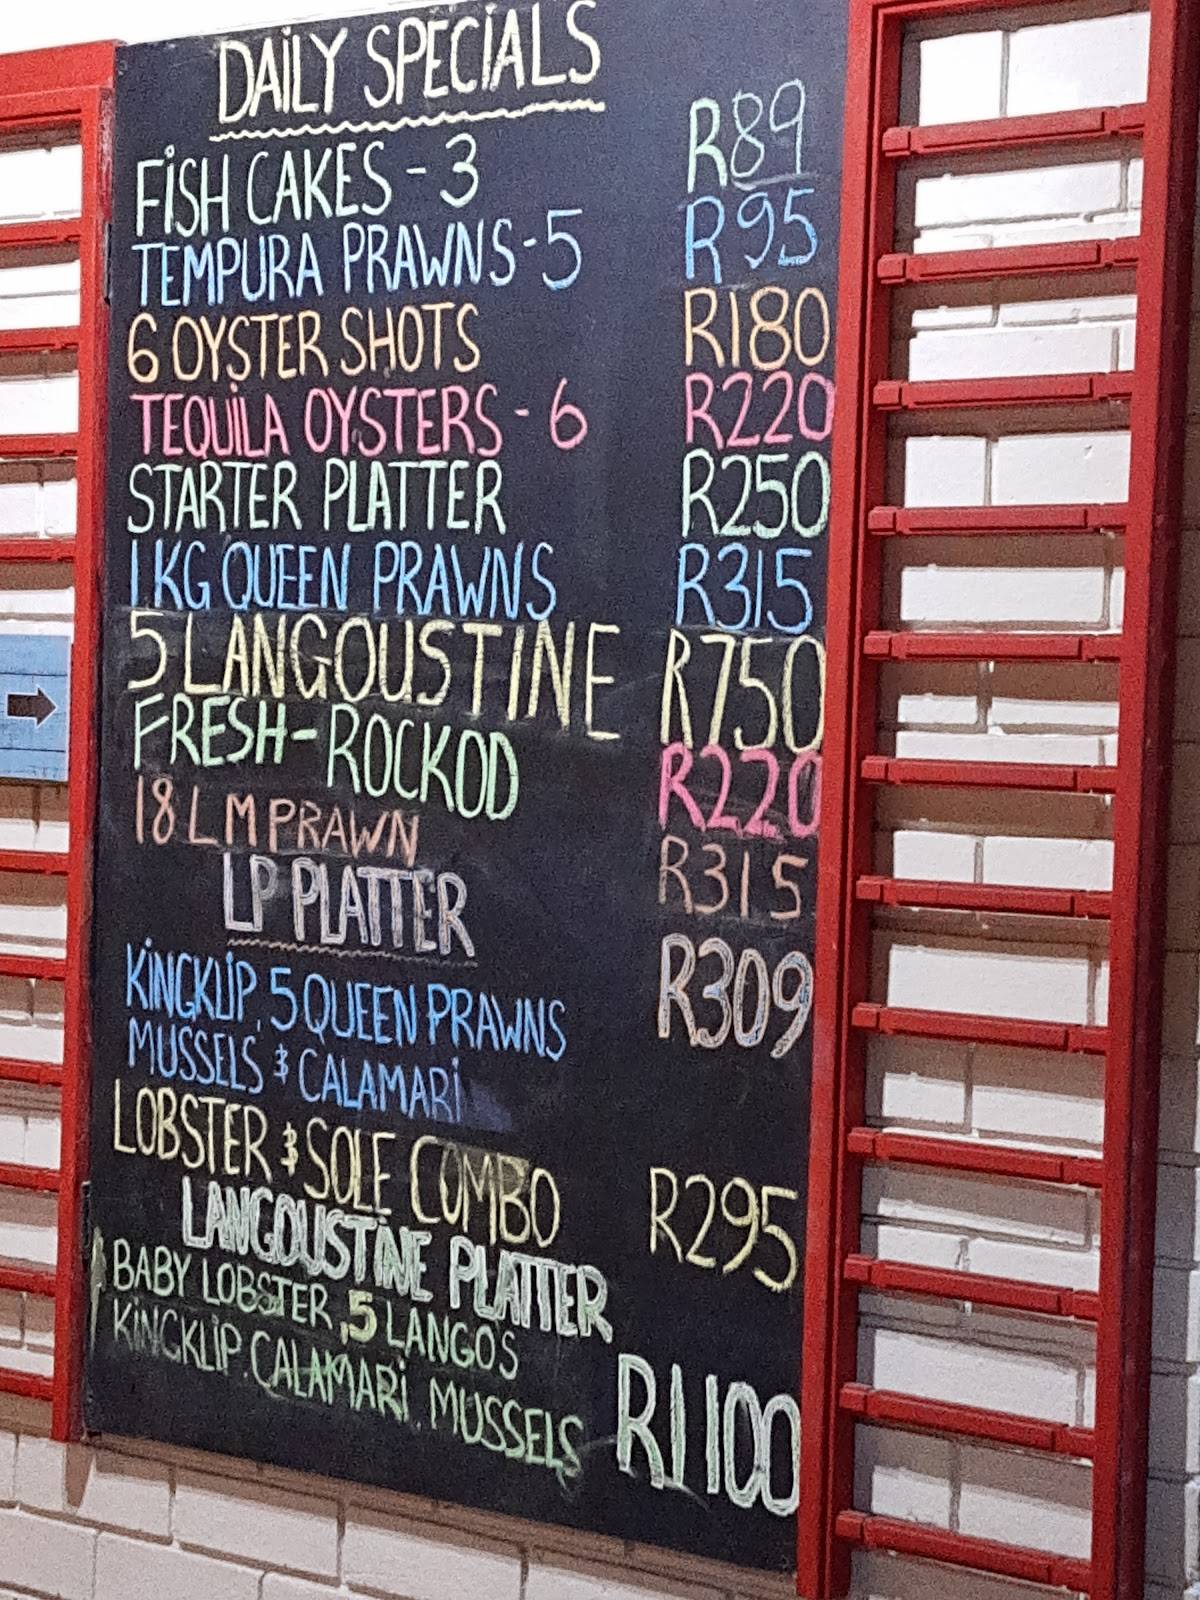 DAILY SPECIALS
FISH CAKES - 3 R89
TEMPURA PRAWNS - 5 R95
6 OYSTER SHOTS R180
TEQUILA OYSTERS - 6 R220
STARTER PLATTER R250
1KG QUEEN PRAWNS R315
5 LANGOUSTINE R750
FRESH - ROCKOD R220
18 L M PRAWN R315
LP PLATTER R309
KINGKLIP, 5 QUEEN PRAWNS
MUSSELS & CALAMARI
LOBSTER & SOLE COMBO R295
LANGOUSTINE PLATTER
BABY LOBSTER, 5 LANGOS
KINGKLIP. CALAMARI. MUSSELS R1100